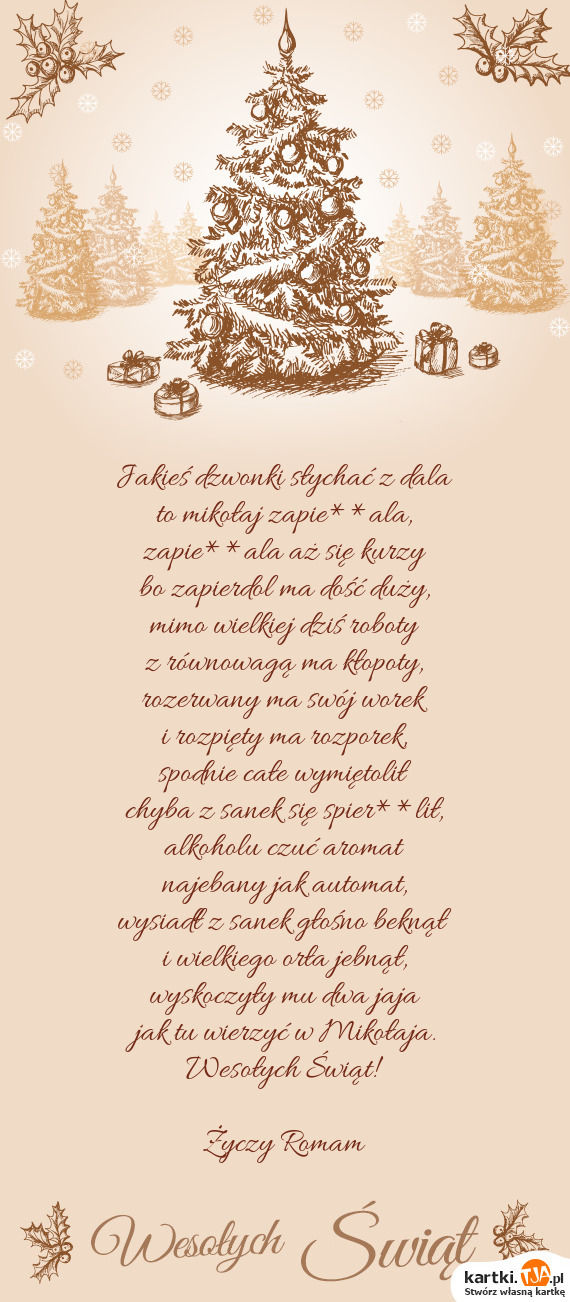 Jakieś dzwonki słychać z dala
to mikołaj zapie**ala,
zapie**ala aż się kurzy
bo zapierdol ma dość duży,
mimo wielkiej dziś roboty
z równowagą ma kłopoty,
rozerwany ma swój worek
i rozpięty ma rozporek,
spodnie całe wymiętolił
chyba z sanek się spier**lił,
alkoholu czuć aromat
najebany jak automat,
wysiadł z sanek głośno beknął
i wielkiego orła jebnął,
wyskoczyły mu dwa jaja
jak tu wierzyć w Mikołaja.
Wesołych Świąt!
Życzy Romam
Wesołych Świąt
kartki.TJA.pl
Stwórz własną kartkę